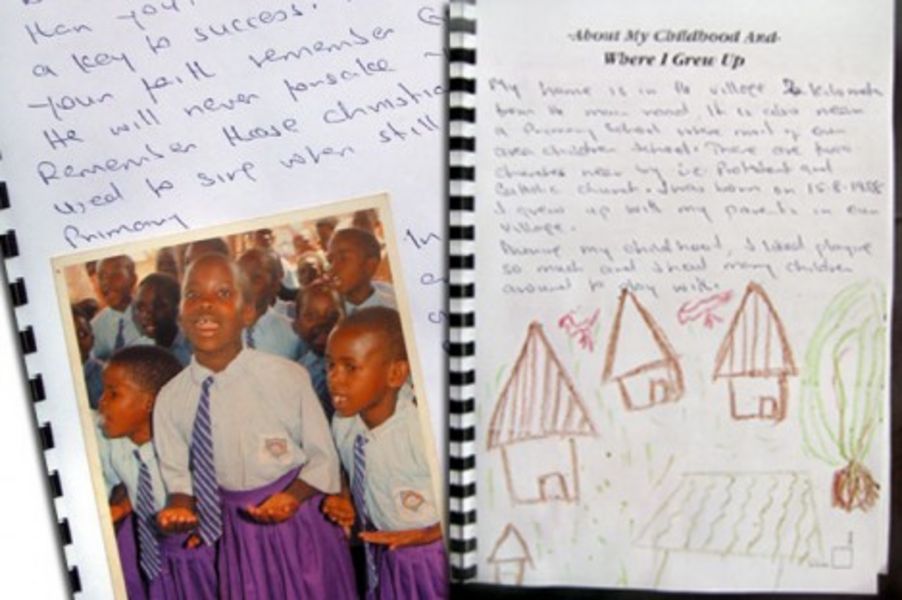 than you.
a key to success.
your faith remember G
He will never forsake
Remember those christia
used to sing when still
Primary
In
-About My Childhood And-
Where I Grew Up
My home is in the village 2 kilometr
from the main road. It is also near
a Primary School where most of our
area children school. There are two
churches near by i.e. Protestant and
Catholic church. I was born on 15-8-1988
I grew up with my parents in our
village.
During my childhood, I liked playing
so much and I had many children
around to play with.